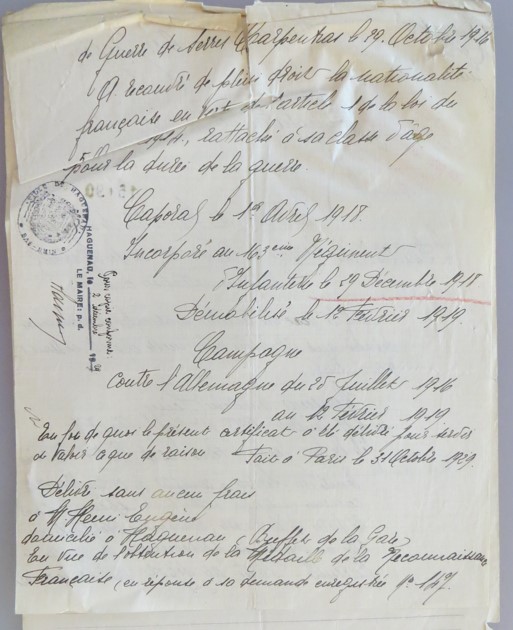 de Guerre de Serres Carpentras le 29 Octobre 1916
A recouvré de plein droit la nationalité
française en vert de l'article 1 de la loi du
rattaché à sa classe d'âge
pour la durée de la guerre.
Caporal le 1er Avril 1918.
Incorporé au 163eme Régiment
d'Infanterie le 29 Décembre 1918
Démobilisé le 12 Février 1919.
Campagne
contre l'Allemagne du 25 Juillet 1916
au 12 Février 1919
En foi de quoi le présent certificat a été délivré pour servir
et valoir à que de raison Fait à Paris le 31 Octobre 1929.
Délivré sans aucun frais
à Mr Henri Eugène
domicilié à Haguenau, Buffet de la Gare
En vue de l'obtention de la Médaille de la Reconnaissance
Française, en réponse à sa demande enregistrée No 147.
HAGUENAU, le
LE MAIRE: p. d.
Pour copie conforme